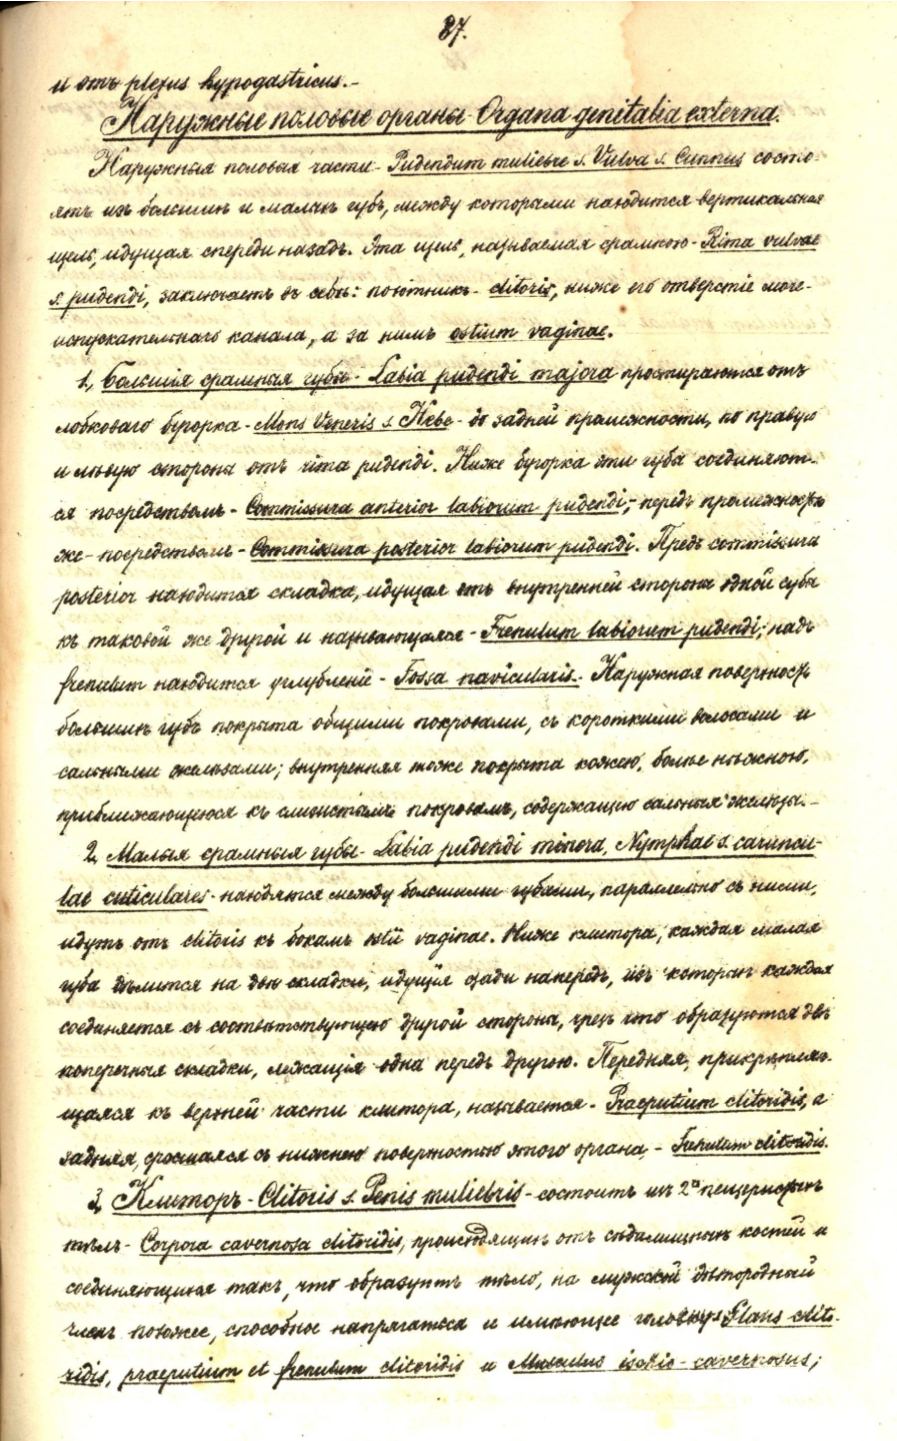 87.
и отъ plexus hypogastricus.-
Наружные половые органы - Organa genitalia externa.
Наружныя половыя части - Pudendum muliebre s. Vulva s. Cunnus состо-
ятъ изъ большихъ и малыхъ губъ, между которыми находится вертикальная
щель, идущая спереди назадъ. Эта щель, называемая срамною - Rima vulvae
s. pudendi, заключаетъ въ себѣ: похотникъ - clitoris, ниже его отверстіе моче-
испускательнаго канала, а за нимъ ostium vaginae.
1, Большія срамныя губы - Labia pudendi majora простираются отъ
лобковаго бугорка - Mons Veneris s. Hebe - до задней промежности, по правую
и лѣвую сторону отъ rima pudendi. Ниже бугорка эти губы соединяют-
ся посредствомъ - Commissura anterior labiorum pudendi; передъ промежностью
же - посредствомъ - Commissura posterior labiorum pudendi. Предъ commissura
posterior находится складка, идущая отъ внутренней стороны одной губы
къ таковой же другой и называющаяся - Frenulum labiorum pudendi; надъ
frenulum находится углубленіе - Fossa navicularis. Наружная поверхность
большихъ губъ покрыта общими покровами, съ короткими волосами и
сальными железами; внутренняя тоже покрыта кожею, болѣе нѣжною,
приближающеюся къ слизистымъ покровамъ, содержащею сальныя железы.-
2, Малыя срамныя губы - Labia pudendi minora, Nymphae s. caruncu-
lae cuticulares - находятся между большими губами, параллельно съ ними,
идутъ отъ clitoris къ бокамъ ostii vaginae. Ниже клитора, каждая малая
губа дѣлится на двѣ складки, идущія сзади напередъ, изъ которыхъ каждая
соединяется съ соотвѣтствующею другой стороны, чрезъ что образуются двѣ
поперечныя складки, лежащія одна передъ другою. Передняя, прикрѣпляю-
щаяся къ верхней части клитора, называется - Praeputium clitoridis, а
задняя, сросшаяся съ нижнею поверхностью этого органа, - Frenulum clitoridis.
3, Клиторъ - Clitoris s. Penis muliebris - состоитъ изъ 2хъ пещеристыхъ
тѣлъ - Corpora cavernosa clitoridis, происходящихъ отъ сѣдалищныхъ костей и
соединяющихся такъ, что образуютъ тѣло, на мужской дѣтородный
членъ похожее, способное напрягаться и имѣющее головку - Glans clito-
ridis, praeputium et frenulum clitoridis и Musculus ischio-cavernosus;